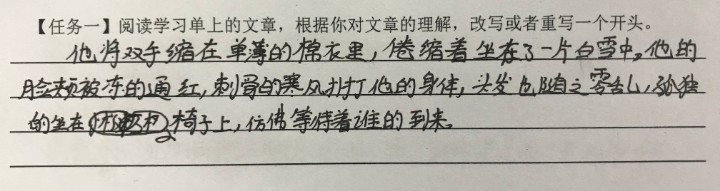 【任务一】阅读学习单上的文章，根据你对文章的理解，改写或者重写一个开头。
他将双手缩在单薄的棉衣里，倦缩着坐在了一片白雪中。他的
脸颊被冻的通红，刺骨的寒风扑打他的身体，头发也随之零乱，孤独
的坐在椅子上，仿佛等待着谁的到来。